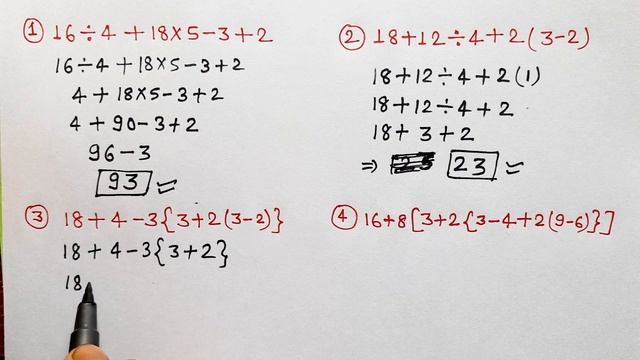 ① 16÷4+18×5-3+2
16÷4+18×5-3+2
4+18×5-3+2
4+90-3+2
96-3
93
② 18+12÷4+2(3-2)
18+12÷4+2(1)
18+12÷4+2
18+3+2
⇒ 23
③ 18+4-3{3+2(3-2)}
18+4-3{3+2}
18
④ 16+8[3+2{3-4+2(9-6)}]